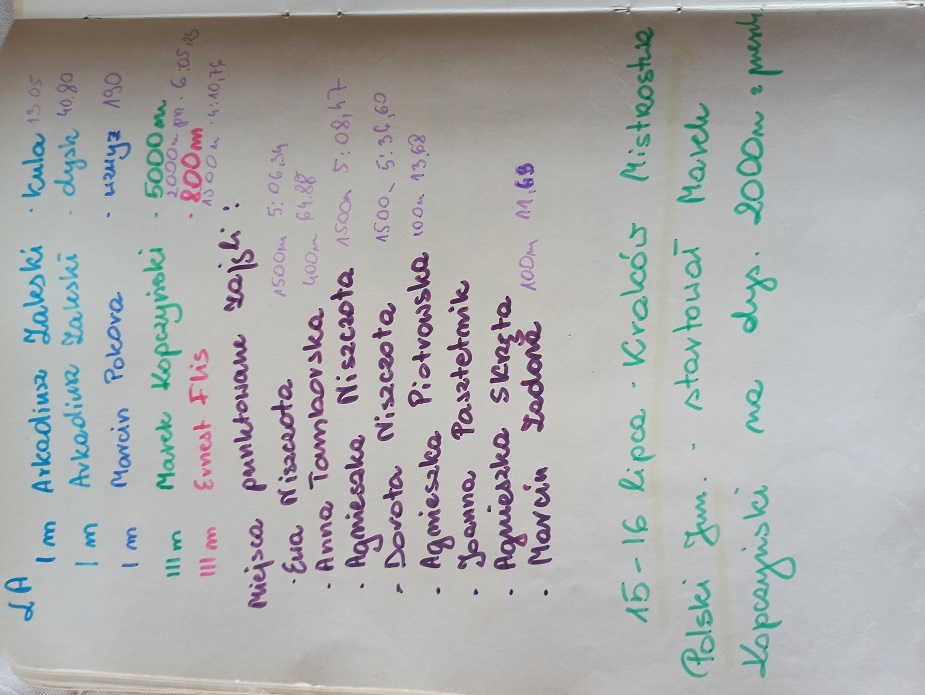 LA
I m Arkadiusz Zaleski · kula 13.05
I m Arkadiusz Zaleski · dysk 40.80
I m Marcin Pokora · wzwyż 190
III m Marek Kopczyński · 5000m
2000m prz. 6:05,23
III m Ernest Flis · 800m
1500m · 4:10,74
Miejsca punktowane zajęli:
· Ewa Niszczota 1500m 5:06,34
· Anna Tamborska 400m 64.88
· Agnieszka Niszczota 1500m 5:08,47
· Dorota Niszczota 1500m 5:36,60
· Agnieszka Piotrowska 100m 13,68
· Joanna Pasztetnik
· Agnieszka Skrzęta
· Marcin Zadora 100m 11.69
15-16 lipca · Kraków Mistrostwa
Polski Jun. · startował Marek
Kopczyński na dys. 2000m z przesz.